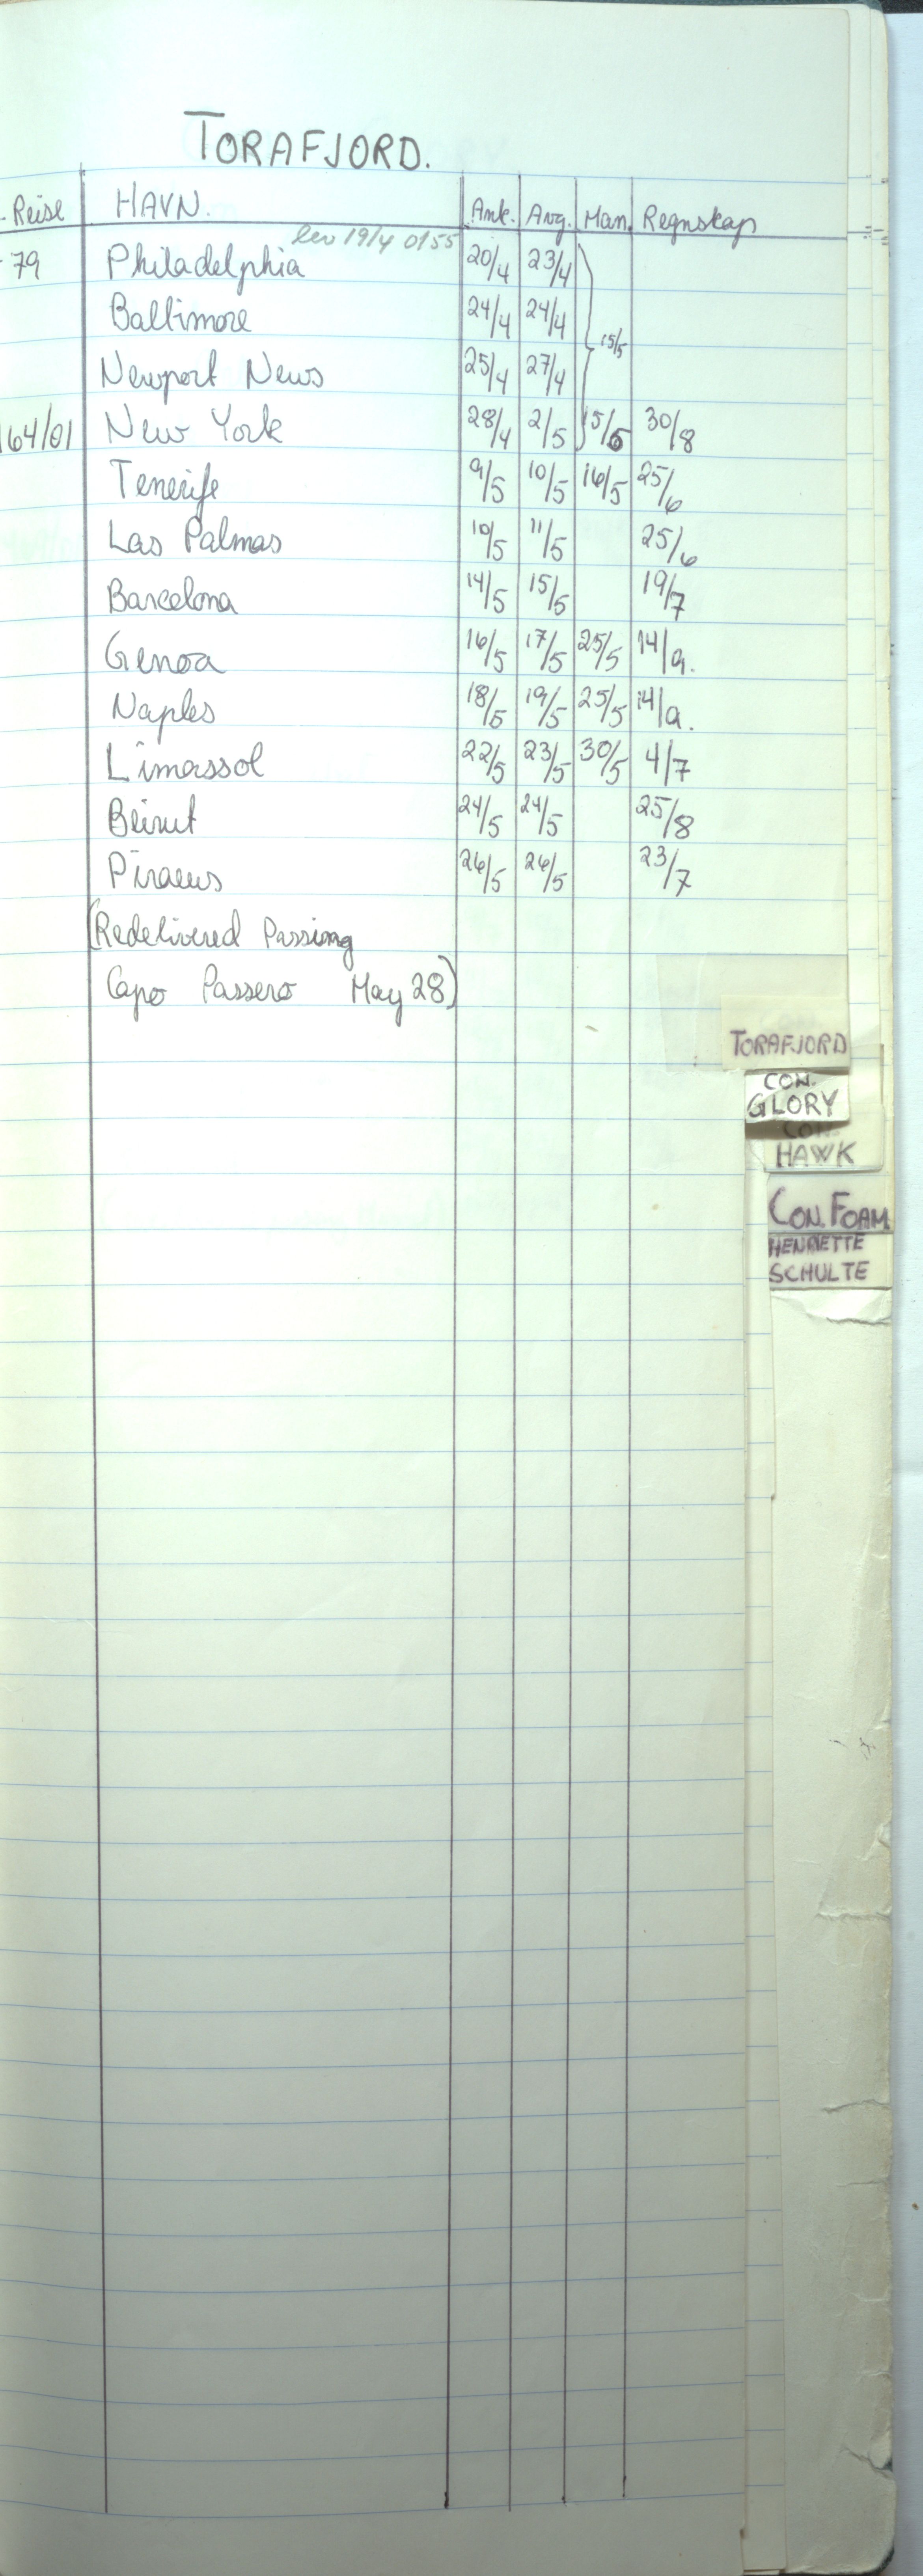 TORAFJORD.
Reise HAVN. Ank. Avg. Man. Regnskap
lev 19/4 0155
79 Philadelphia 20/4 23/4
Baltimore 24/4 24/4
15/5
Newport News 25/4 27/4
164/01 New York 28/4 2/5 15/5 30/8
Tenerife 9/5 10/5 16/5 25/6
Las Palmas 10/5 11/5 25/6
Barcelona 14/5 15/5 19/7
Genoa 16/5 17/5 25/5 14/9.
Naples 18/5 19/5 25/5 14/9.
Limassol 22/5 23/5 30/5 4/7
Beirut 24/5 24/5 25/8
Piraeus 26/5 26/5 23/7
(Redelivered Passing
Capo Passero May 28)
TORAFJORD
CON.
GLORY
CON.
HAWK
CON. FOAM
HENRIETTE
SCHULTE